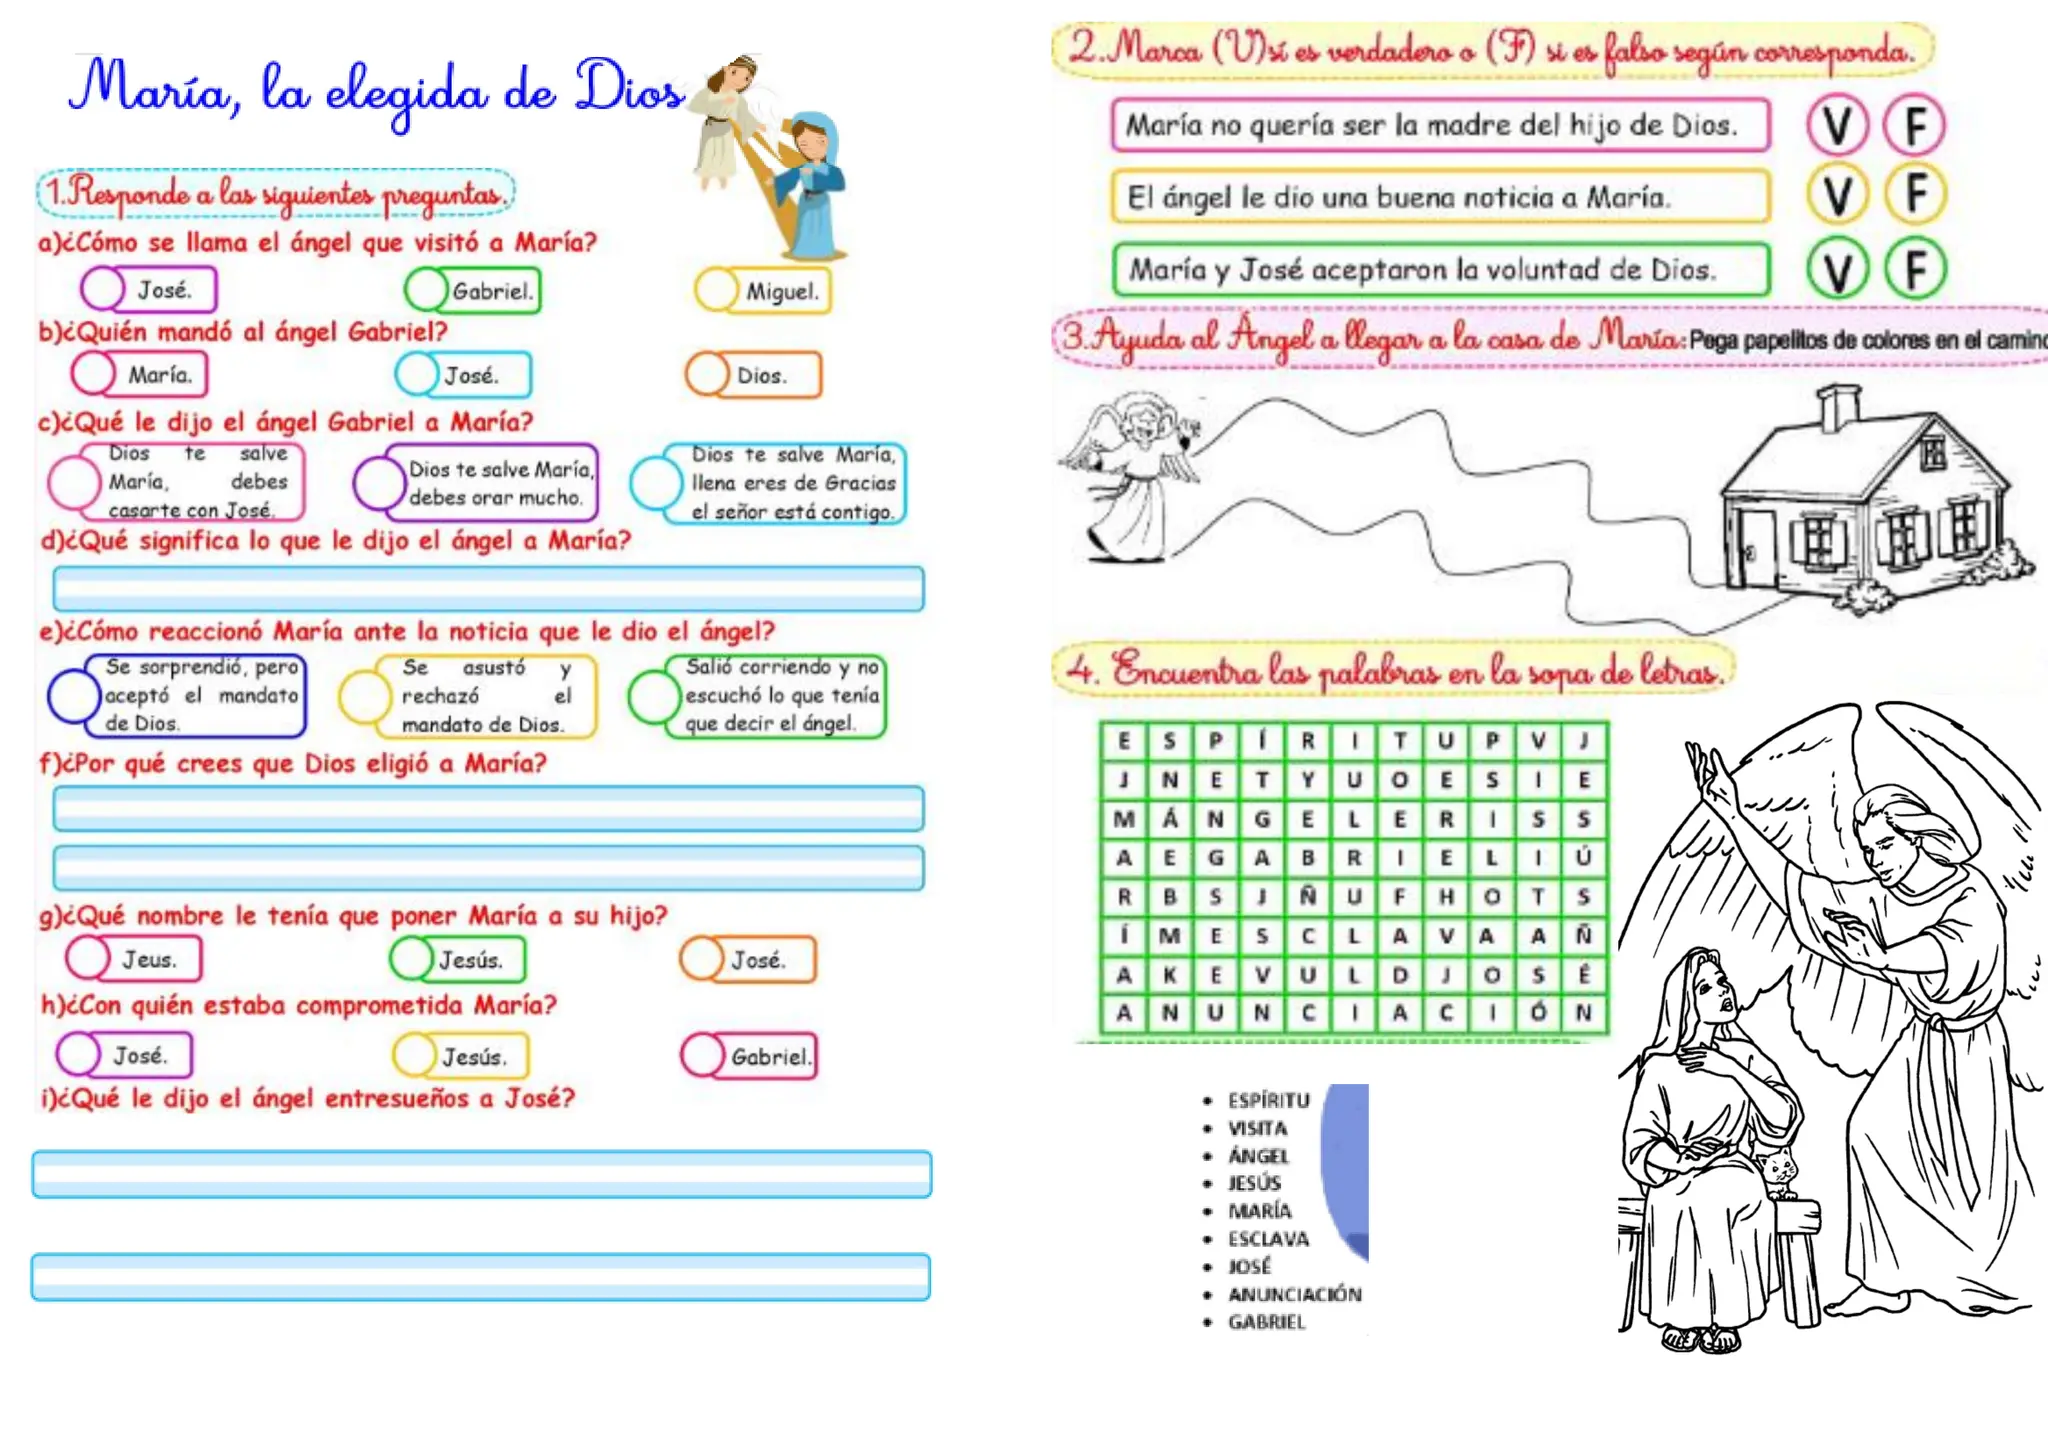 María, la elegida de Dios
1.Responde a las siguientes preguntas.
a)¿Cómo se llama el ángel que visitó a María?
José.
Gabriel.
Miguel.
b)¿Quién mandó al ángel Gabriel?
María.
José.
Dios.
c)¿Qué le dijo el ángel Gabriel a María?
Dios te salve
María, debes
casarte con José.
Dios te salve María,
debes orar mucho.
Dios te salve María,
llena eres de Gracias
el señor está contigo.
d)¿Qué significa lo que le dijo el ángel a María?
e)¿Cómo reaccionó María ante la noticia que le dio el ángel?
Se sorprendió, pero
aceptó el mandato
de Dios.
Se asustó y
rechazó el
mandato de Dios.
Salió corriendo y no
escuchó lo que tenía
que decir el ángel.
f)¿Por qué crees que Dios eligió a María?
g)¿Qué nombre le tenía que poner María a su hijo?
Jeus.
Jesús.
José.
h)¿Con quién estaba comprometida María?
José.
Jesús.
Gabriel.
i)¿Qué le dijo el ángel entresueños a José?
2.Marca (V)sí es verdadero o (F) si es falso según corresponda.
María no quería ser la madre del hijo de Dios. V F
El ángel le dio una buena noticia a María. V F
María y José aceptaron la voluntad de Dios. V F
3.Ayuda al Ángel a llegar a la casa de María: Pega papelitos de colores en el camino
4. Encuentra las palabras en la sopa de letras.
E S P Í R I T U P V J
J N E T Y U O E S I E
M Á N G E L E R I S S
A E G A B R I E L I Ú
R B S J Ñ U F H O T S
Í M E S C L A V A A Ñ
A K E V U L D J O S É
A N U N C I A C I Ó N
• ESPÍRITU
• VISITA
• ÁNGEL
• JESÚS
• MARÍA
• ESCLAVA
• JOSÉ
• ANUNCIACIÓN
• GABRIEL